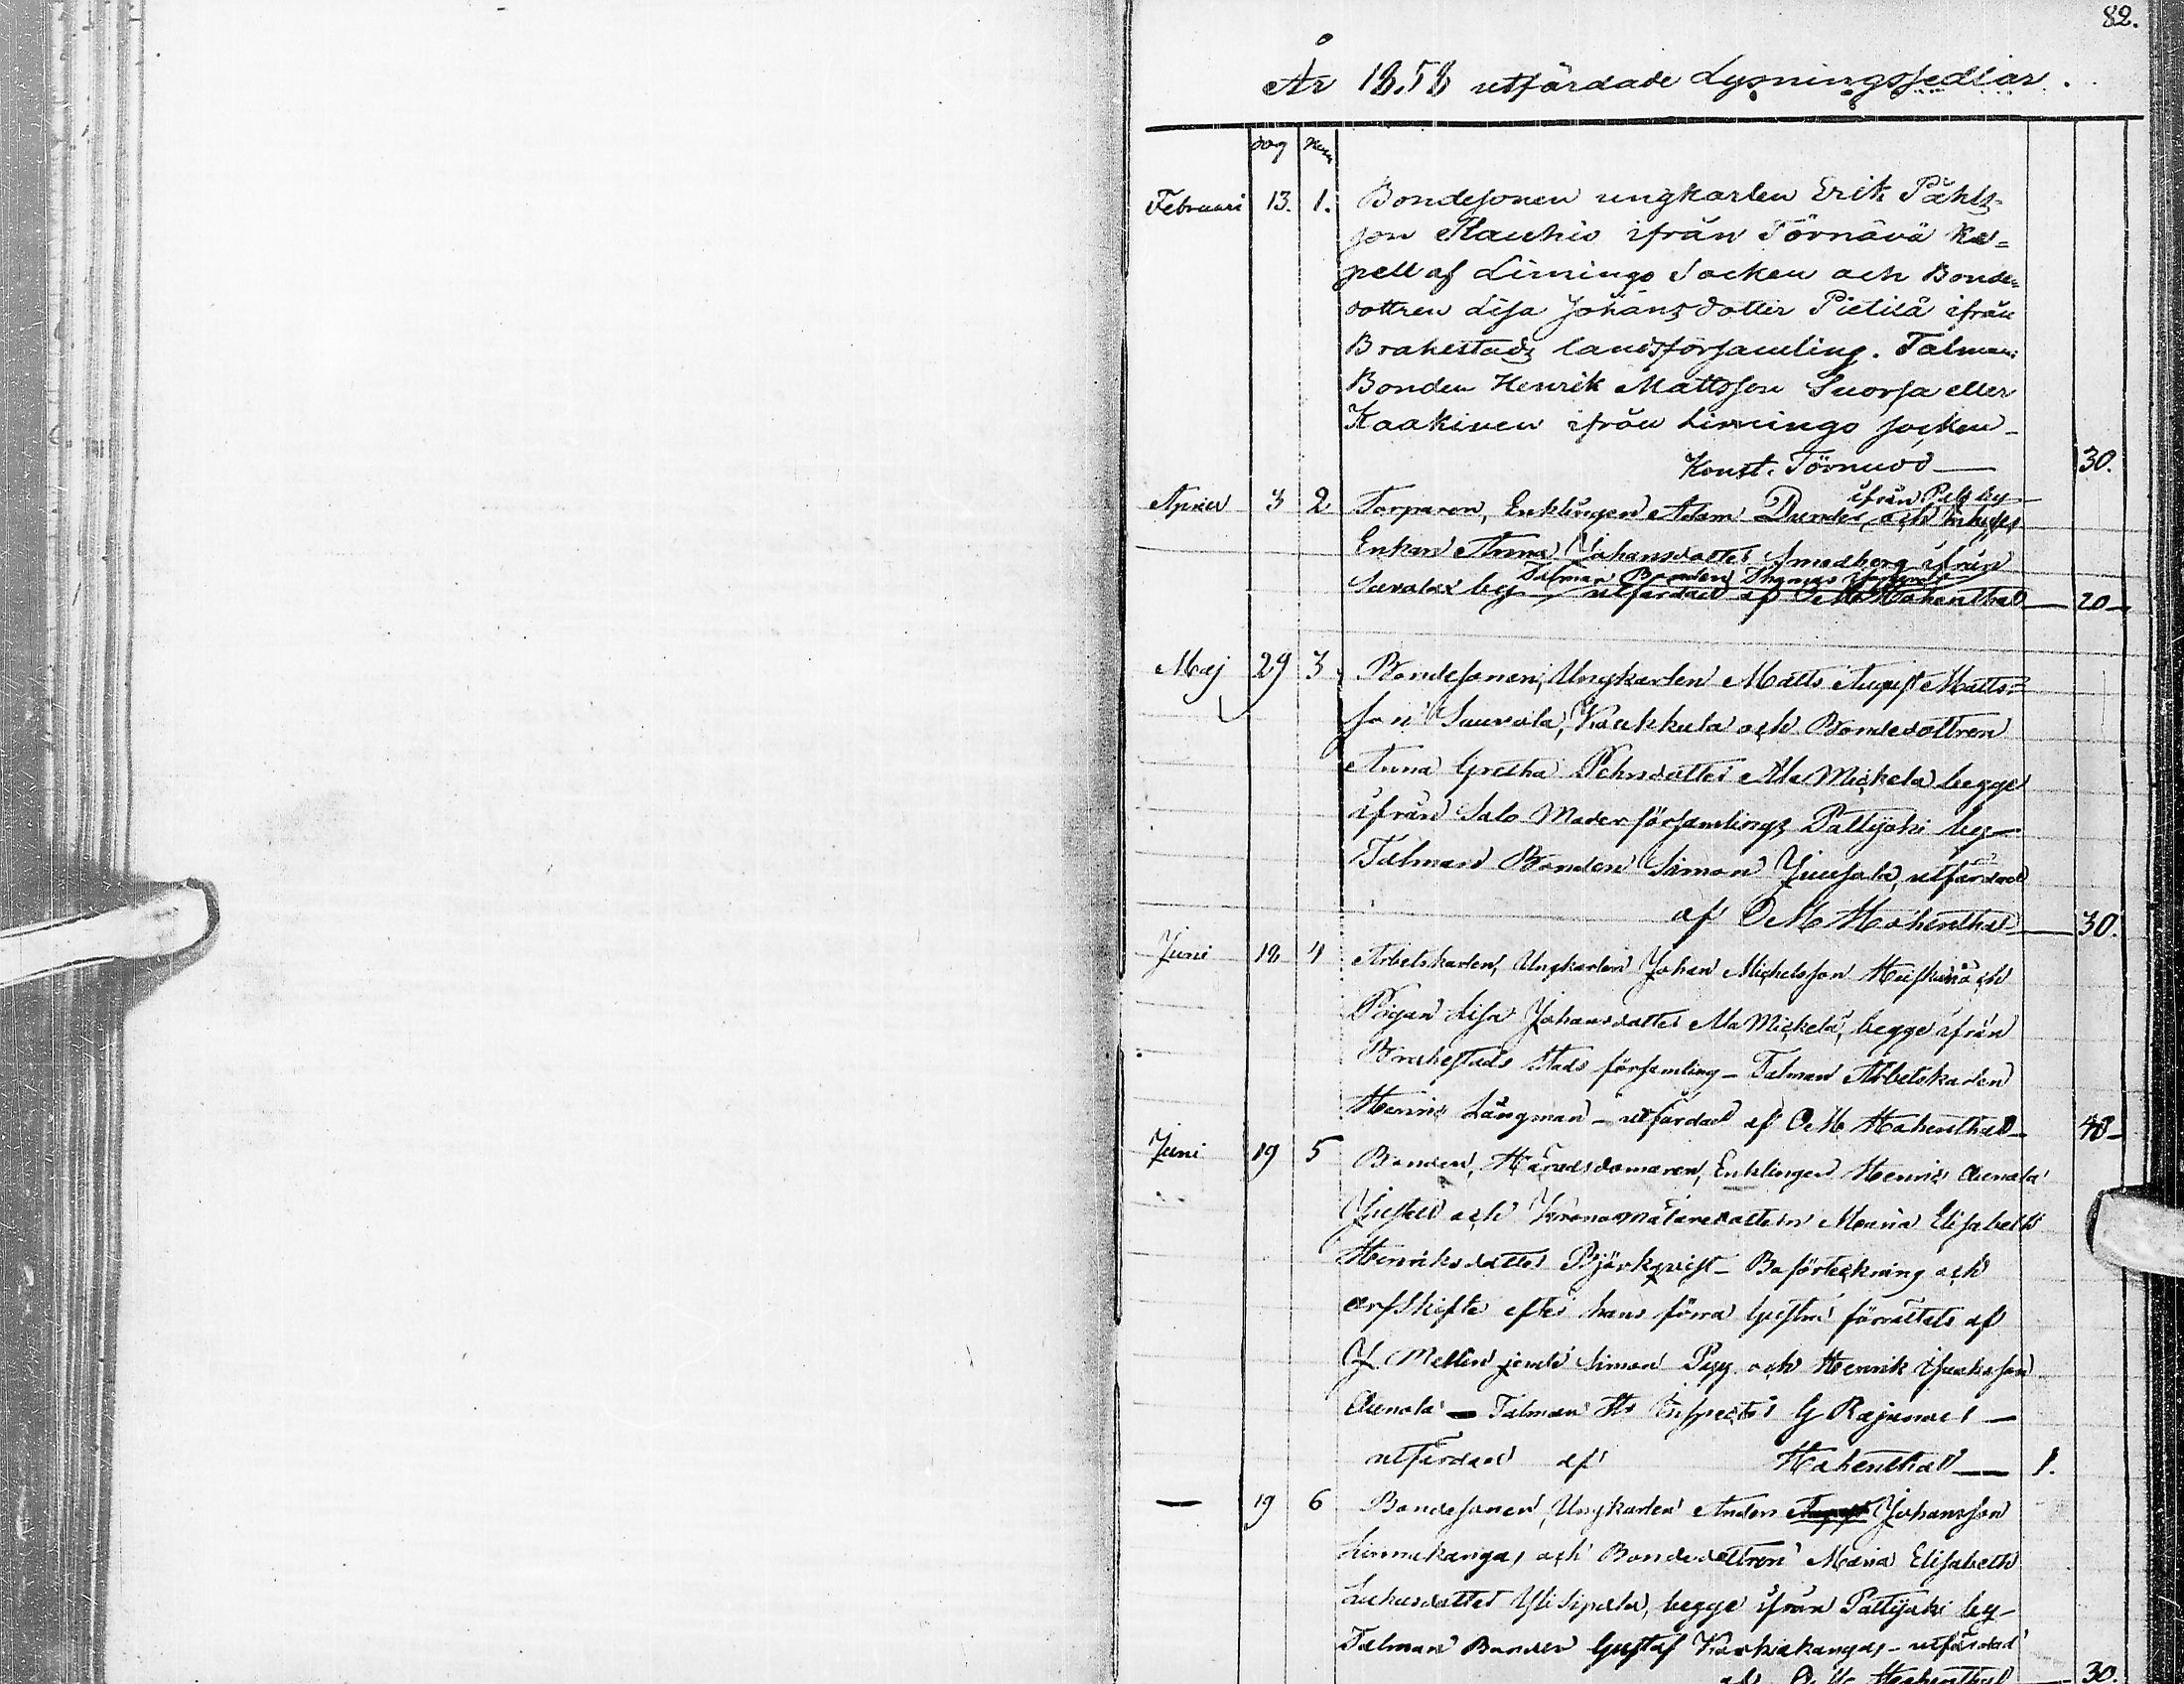 82.
År 1858 utfärdade Lysningssedlar.
dag num
Februari 13. 1. Bondesonen ungkarlen Erik Påhls-
son Rauhio ifrån Törnävä Ka-
pell af Limingo Socken och Bonde-
dottren Lisa Johansdotter Pietilä ifrån
Brahestads landsförsamling. Talman:
Bonden Henrik Mattsson Suorsa eller
Kaakinen ifrån Limingo socken
Konst. Törnudd 30.
ifrån Pelg by
April 3 2 Torparen, Enklingen Adam Dunder och Inhyses
Enkan Anna Johansdotter Smedberg ifrån
Talman Bonden Thomas
Savolax by utfärdad af O M Hohenthal 20
Maj 29 3 Bondesonen, Ungkarlen Matts August Matts-
son Sauvola, Kaukkula och Bondedottren
Anna Gretha Pehrsdotter Ala Mickela begge
ifrån Salo Moderförsamlings Pattijoki by
Talman Bonden Simon Jussola, utfärdad
af O M Hohenthal 30.
Juni 12 4 Arbetskarlen, Ungkarlen Johan Michelsson och
Pigan Lisa Johansdotter Ala Mickelä, begge ifrån
Brahestads Stads församling - Talman Arbetskarlen
Henric Långman - utfärdad af O M Hohenthal 40
Juni 19 5 Bonden, Häradsdomaren, Enklingen Henric Aunola
och Kronomätaredottern Maria Elisabeth
Henriksdotter Björkqvist - Boförteckning och
arfskifte efter hans förra hustru förrättats af
J. Mellin jemte Simon Pyy och Henrik Isaksson
Aunola - Talman Hr Inspector G Rajander
utfärdad af Hohenthal 1.
— 19 6 Bondesonen, Ungkarlen Anders August Johansson
Linnakangas och Bondedottren Maria Elisabeth
Lukasdotter Yli Sipola, begge ifrån Pattijoki by
Talman Bonden Gustaf Karhukangas - utfärdad
af O M Hohenthal 30.